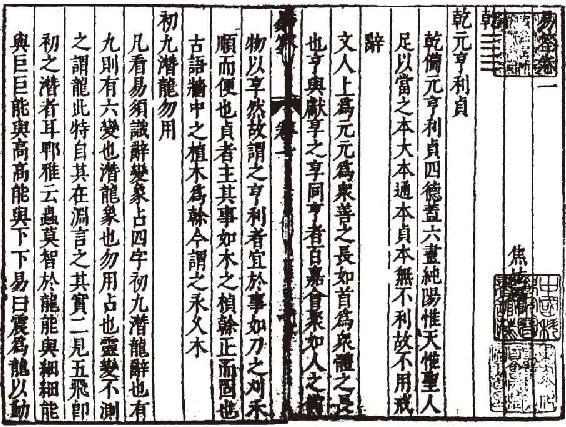 易筌卷一
焦竑
乾
乾元亨利貞
乾備元亨利貞四德蓋六畫純陽惟天惟聖人
足以當之本大本通本貞本無不利故不用戒
辭
文人上爲元元爲衆善之長如首爲衆體之長
也亨與獻享之享同亨者百嘉會聚如人之備
物以享然故謂之亨利者宜於事如刀之刈禾
順而便也貞者主其事如木之楨榦正而固也
古語牆中之植木爲榦今謂之永久木
初九潛龍勿用
凡看易須識辭變象占四字初九潛龍辭也有
九則有六變也潛龍象也勿用占也靈變不測
之謂龍此特自其在淵言之其實二見五飛即
初之潛者耳郫雅云蟲莫智於龍龍能與細細能
與巨巨能與高高能與下下易曰震爲龍以動